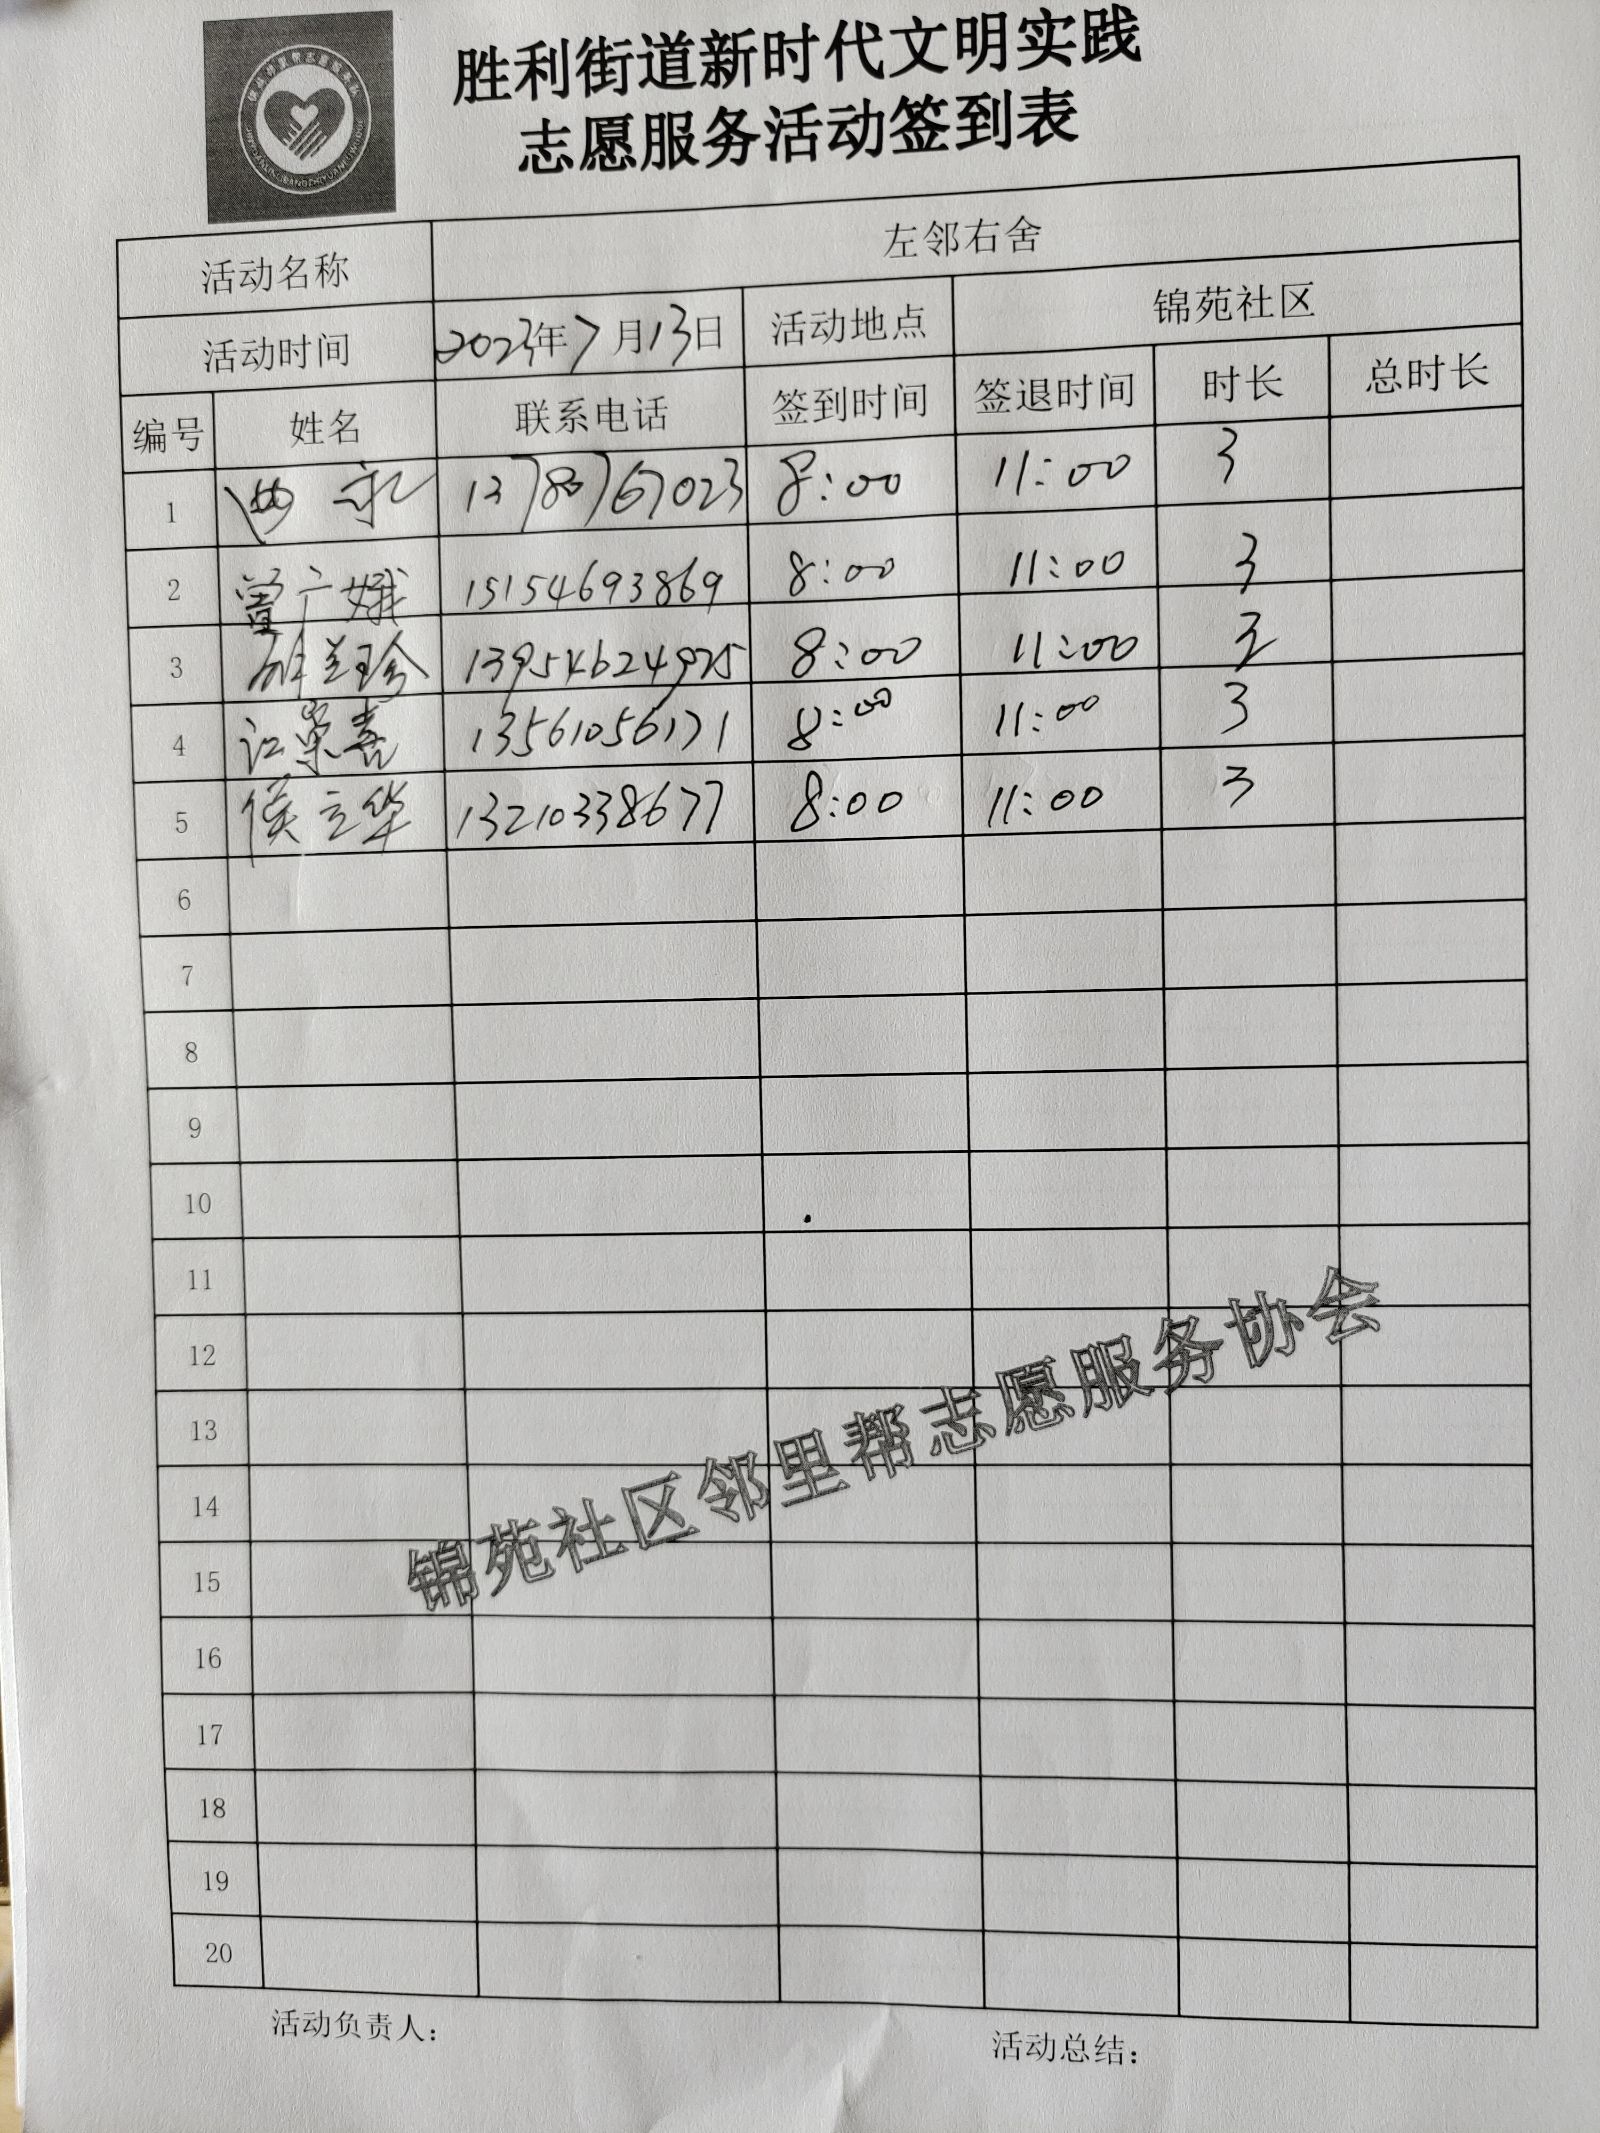 胜利街道新时代文明实践
志愿服务活动签到表
活动名称 左邻右舍
活动时间 2023年7月13日 活动地点 锦苑社区
编号 姓名 联系电话 签到时间 签退时间 时长 总时长
1 13780767023 8:00 11:00 3
2 曾广娥 15154693869 8:00 11:00 3
3 兰珍 13954624925 8:00 11:00 3
4 江崇喜 13561056171 8:00 11:00 3
5 侯立华 13210338677 8:00 11:00 3
6
7
8
9
10
11
12
13
14
15
16
17
18
19
20
锦苑社区邻里帮志愿服务协会
活动负责人：
活动总结：